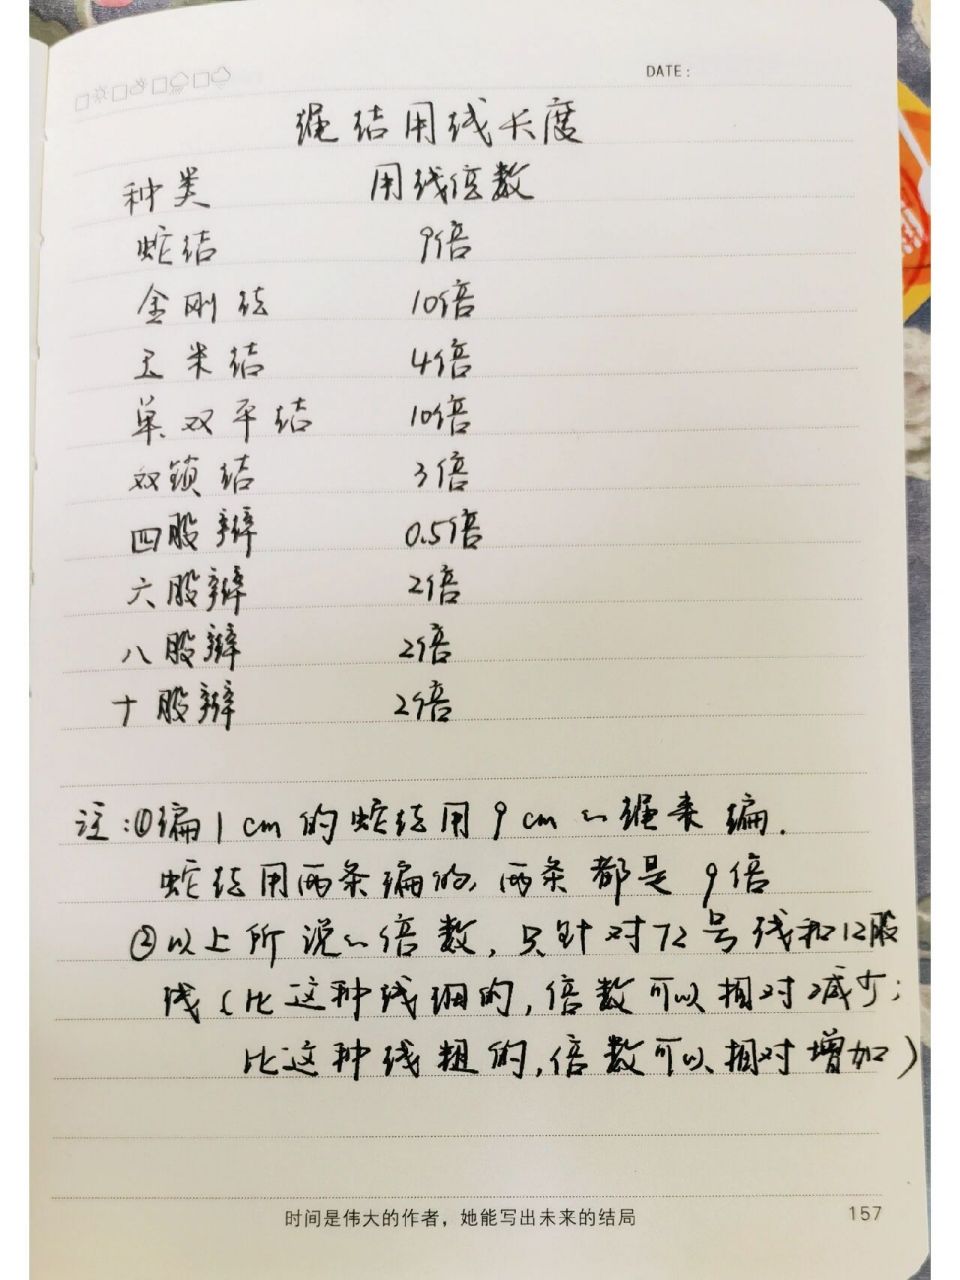 DATE:
绳结用线长度
种类 用线倍数
蛇结 9倍
金刚结 10倍
玉米结 4倍
单双平结 10倍
双锁结 3倍
四股辫 0.5倍
六股辫 2倍
八股辫 2倍
十股辫 2倍
注:①编1cm的蛇结用9cm的绳来编.
蛇结用两条编的,两条都是9倍
②以上所说的倍数,只针对72号线和12股
线(比这种线细的,倍数可以相对减少;
比这种线粗的,倍数可以相对增加)
时间是伟大的作者，她能写出未来的结局
157